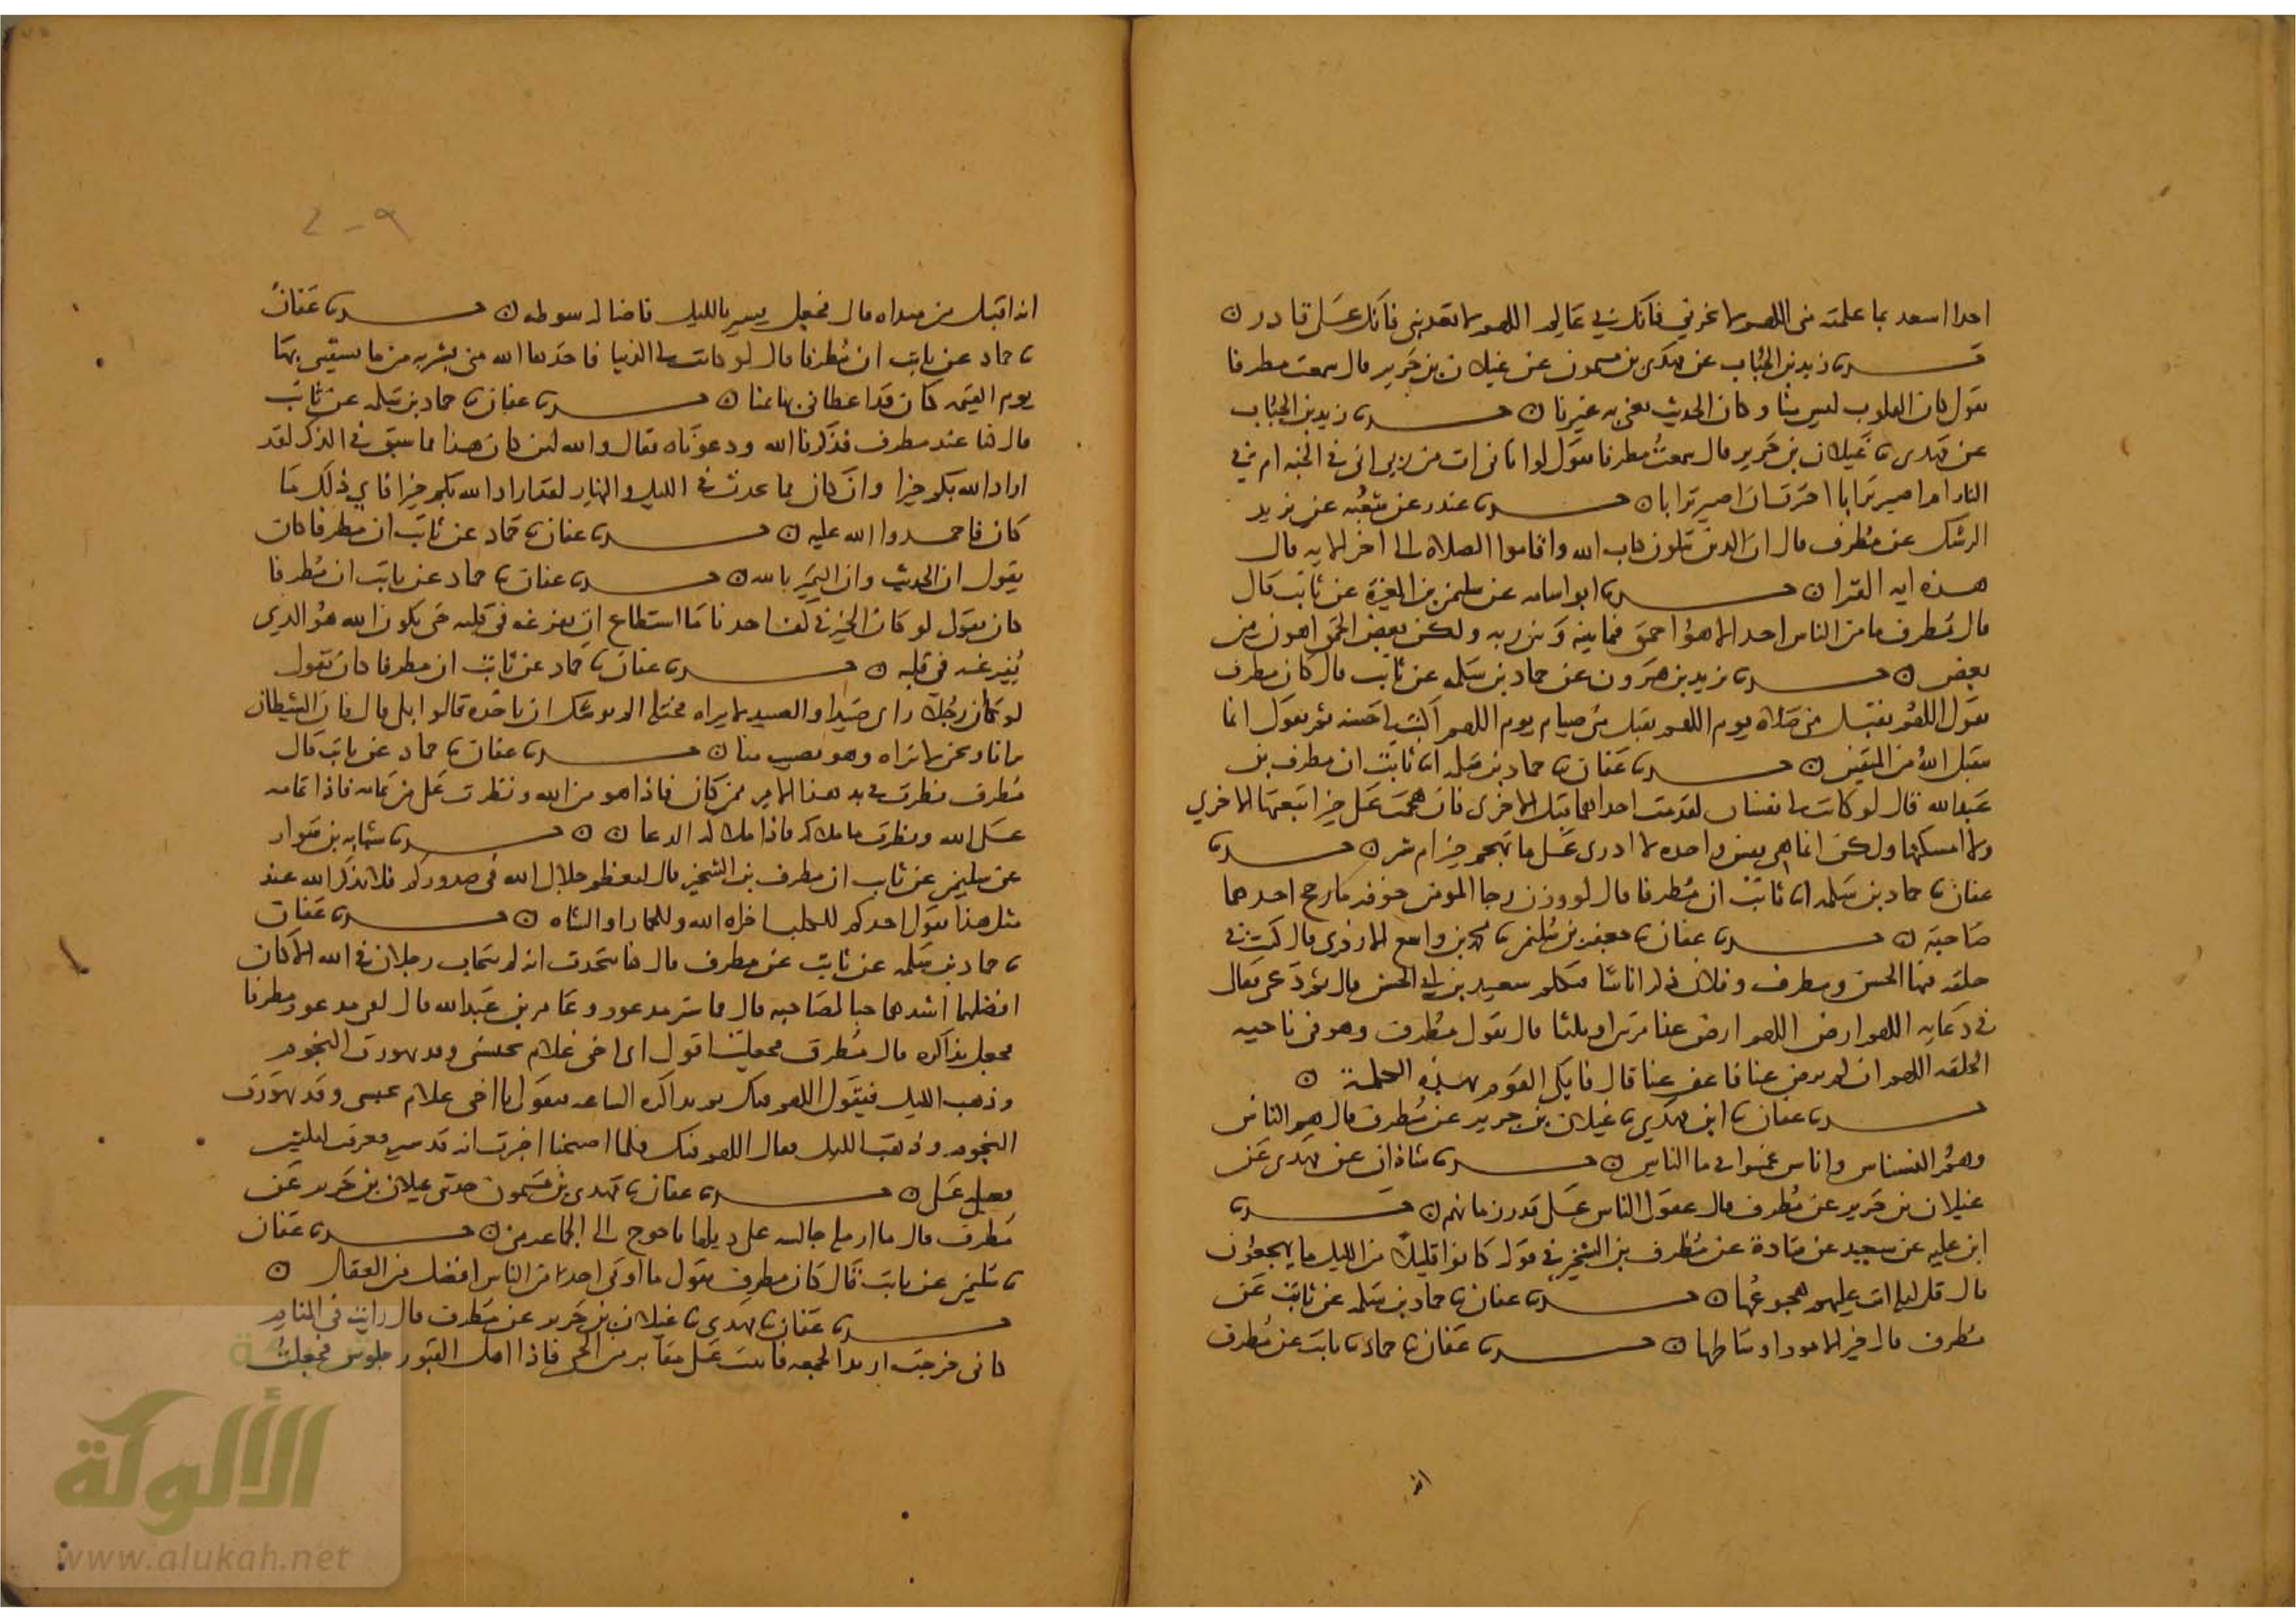 احدا اسعد بما علمته مني اللهم لا تخزني فانك بي عالم اللهم لا تعذبني فانك علي قادر ن
حدثنا زيد بن الحباب عن مهدي بن ميمون عن غيلان بن جرير قال سمعت مطرفا
يقول كان القلوب ليس منا وكان الحديث يعني به غيرنا ن حدثنا زيد بن الحباب
عن مهدي نا غيلان بن جرير قال سمعت مطرفا يقول لو اتاني ات من ربي اني في الجنة ام في
النار ام اصير ترابا اخترت ان اصير ترابا ن حدثنا غندر عن شعبه عن يزيد
الرشك عن مطرف قال ان الذين يتلون كتاب الله واقاموا الصلاه الى اخر الايه قال
هذه ايه القرا ن حدثنا ابو اسامه عن سليمن بن المغيرة عن ثابت قال
قال مطرف ما من الناس احد الا هو احمق فيما بينه وبين ربه ولكن بعض الحمق اهون من
بعض ن حدثنا يزيد بن هرون عن حماد بن سلمه عن ثابت قال كان مطرف
يقول اللهم تقبل مني صلاه يوم اللهم تقبل مني صيام يوم اللهم اكتب لي حسنه ثم يقول انما
يتقبل الله من المتقين ن حدثنا عفان نا حماد بن سلمه انا ثابت ان مطرف بن
عبد الله قال لو كانت لي نفسان لقدمت احداهما قبل الاخرى فان هجمت على خير اتبعتها الاخري
والا امسكتها ولكن انما هي نفس واحده لا ادري على ما تهجم خير ام شر ن حدثنا
عفان نا حماد بن سلمه انا ثابت ان مطرفا قال لو وزن رجا المومن وخوفه ما رجح احدهما
صاحبه ن حدثنا عفان نا جعفر بن سليمن نا محمد بن واسع الازدي قال كنت في
حلقه فيها الحسن ومطرف وفلان ذكر اناسا فتكلم سعيد بن ابي الحسن قال ثم دعى فقال
في دعايه اللهم ارض عنا اللهم ارض عنا مرتين او ثلثا قال يقول مطرف وهو في ناحيه
الحلقه اللهم ان لم ترض عنا فاعف عنا قال فابكى القوم بهذه الكلمة ن
حدثنا عفان نا ابن مهدي نا غيلان بن جرير عن مطرف قال هم الناس
وهم النسناس واناس غمسوا في ما الناس ن حدثنا شاذان عن مهدي عن
غيلان بن جرير عن مطرف قال عقول الناس على قدر زمانهم ن حدثنا
ابن عليه عن سعيد عن قتادة عن مطرف بن الشخير في قوله كانوا قليلا من الليل ما يهجعون
قال قل ليله اتت عليهم هجوعها ن حدثنا عفان نا حماد بن سلمه عن ثابت عن
مطرف قال خير الامور اوساطها ن حدثنا عفان نا حماد نا ثابت عن مطرف
انه
انه اقبل من مبداه قال فجعل يسير بالليل فاضا له سوطه ن حدثنا عفان
نا حماد عن ثابت ان مطرفا قال لو كانت لي الدنيا فاخذها الله مني بشربه من ما يسقيني بها
يوم القيمه كان قد اعطاني بها ثمنا ن حدثنا عفان نا حماد بن سلمه عن ثابت
قال كنا عند مطرف فذكرنا الله ودعوناه فقال والله لئن كان هذا مما سبق في الذكر لقد
اراد الله بكم خيرا وان كان مما يحدث في الليل والنهار لقد اراد الله بكم خيرا فاي ذلك ما
كان فاحمدوا الله عليه ن حدثنا عفان نا حماد عن ثابت ان مطرفا كان
يقول ان الحديث وان اليمين بالله ن حدثنا عفان نا حماد عن ثابت ان مطرفا
كان يقول لو كان الخير في كف احدنا ما استطاع ان يفرغه في قلبه حتى يكون الله هو الذي
يفرغه في قلبه ن حدثنا عفان نا حماد عن ثابت ان مطرفا كان يقول
لو كان رجل راى صيدا والصيد لا يراه يختله الم يوشك ان ياخذه قالوا بلى قال فان الشيطان
يرانا ونحن لا نراه وهو يصيب منا ن حدثنا عفان نا حماد عن ثابت قال
مطرف نظرت في بدء هذا الامر ممن كان فاذا هو من الله ونظرت على من تمامه فاذا تمامه
على الله ونظرت ما ملاكه فاذا ملاكه الدعا ن ن حدثنا شبابه بن سوار
عن سليمن عن ثابت ان مطرف بن الشخير قال ليعظم جلال الله في صدوركم فلا تذكر الله عند
مثل هذا يقول احدكم للكلب اخزاه الله وللحمار والشاه ن حدثنا عفان
نا حماد بن سلمه عن ثابت عن مطرف قال كنا نتحدث انه لم يتحاب رجلان في الله الا كان
افضلهما اشدهما حبا لصاحبه قال فلما سير مذعور وعامر بن عبد الله قال لقي مذعور مطرفا
فجعل يذاكره قال مطرف فجعلت اقول اي اخي علام تحبسني وقد تهورت النجوم
وذهب الليل فيقول اللهم فيك ثم يذاكره الساعه فيقول يا اخي علام تحبسني وقد تهورت
النجوم وذهب الليل فقال اللهم فيك فلما اصبحنا اخبرت انه قد سير فعرفت ليلتئذ
فضله علي ن حدثنا عفان نا مهدي بن ميمون حدثني غيلان بن جرير عن
مطرف قال ما ارمله جالسه على ذيلها باحوج الى الجماعه مني ن حدثنا عفان
نا سليمن عن ثابت قال كان مطرف يقول ما اوتى احد من الناس افضل من العقل ن
حدثنا عفان نا مهدي نا غيلان بن جرير عن مطرف قال رايت في المنام
كاني خرجت اريد الجمعه فاتيت على مقابر من الحي فاذا اهل القبور جلوس فجعلت
الألوكة
www.alukah.net